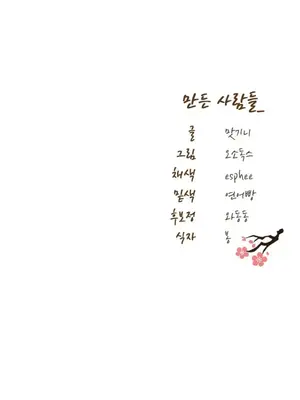 만든 사람들_
글 맛기니
그림 오소독스
채색 esphee
밑색 연어빵
후보정 와동동
식자 봉